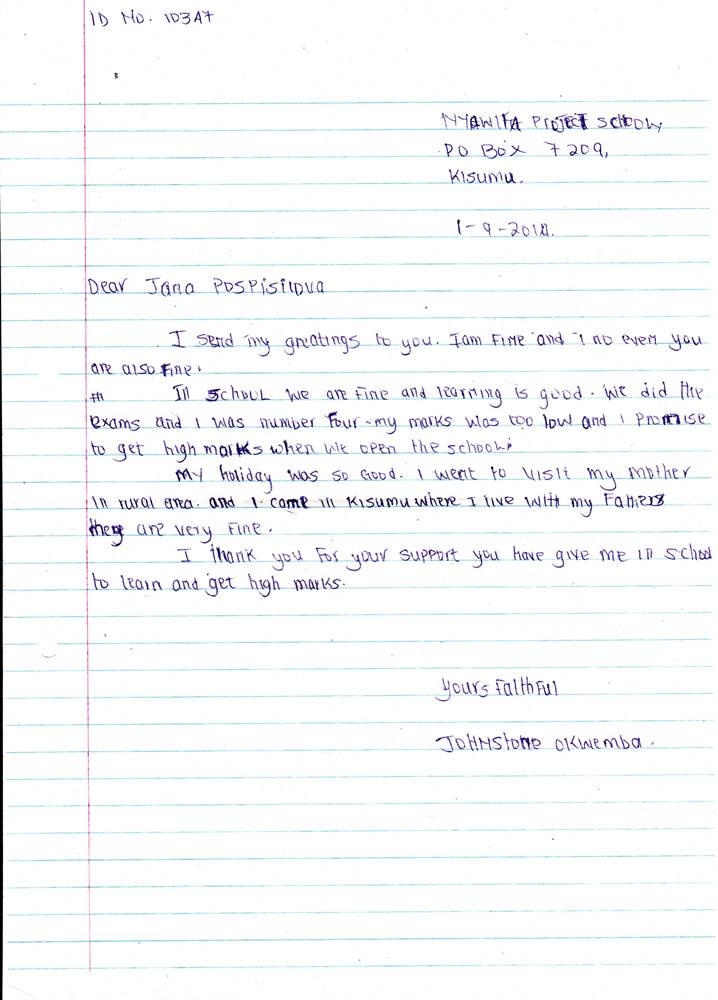 ID NO. 103A7
NYAWITA PROJECT SCHOOL,
PO BOX 7209,
KISUMU.
1-9-2011.
Dear Jana POSPISILOVA
I send my greatings to you. I am FINE and I no even you
are also FINE.
In SCHOOL we are Fine and learning is good. We did the
exams and I was number Four. my marks was too low and I Promise
to get high marks when we open the school.
My holiday was so Good. I went to visit my mother
in rural area. and I came in KISUMU where I live with my Fathers
they are very Fine.
I thank you For your support you have give me in school
to learn and get high marks.
Yours Faithful
JOHNStone OKWEMBA.